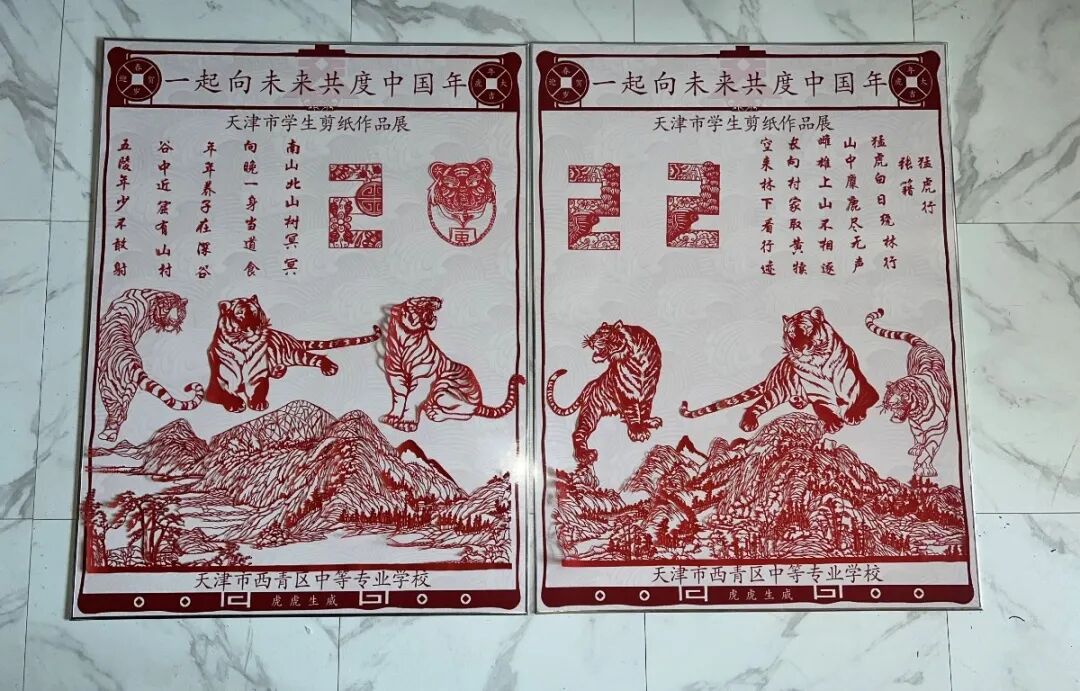 迎春贺岁
一起向未来共度中国年
虎年大吉
天津市学生剪纸作品展
南山北山树冥冥
向晚一身当道食
年年养子在深谷
谷中近窟有山村
五陵年少不敢射
2
寅
天津市西青区中等专业学校
虎虎生威
迎春贺岁
一起向未来共度中国年
虎年大吉
天津市学生剪纸作品展
猛虎行
张籍
猛虎白日绕林行
山中麋鹿尽无声
雌雄上山不相逐
长向村家取黄犊
空来林下看行迹
22
天津市西青区中等专业学校
虎虎生威